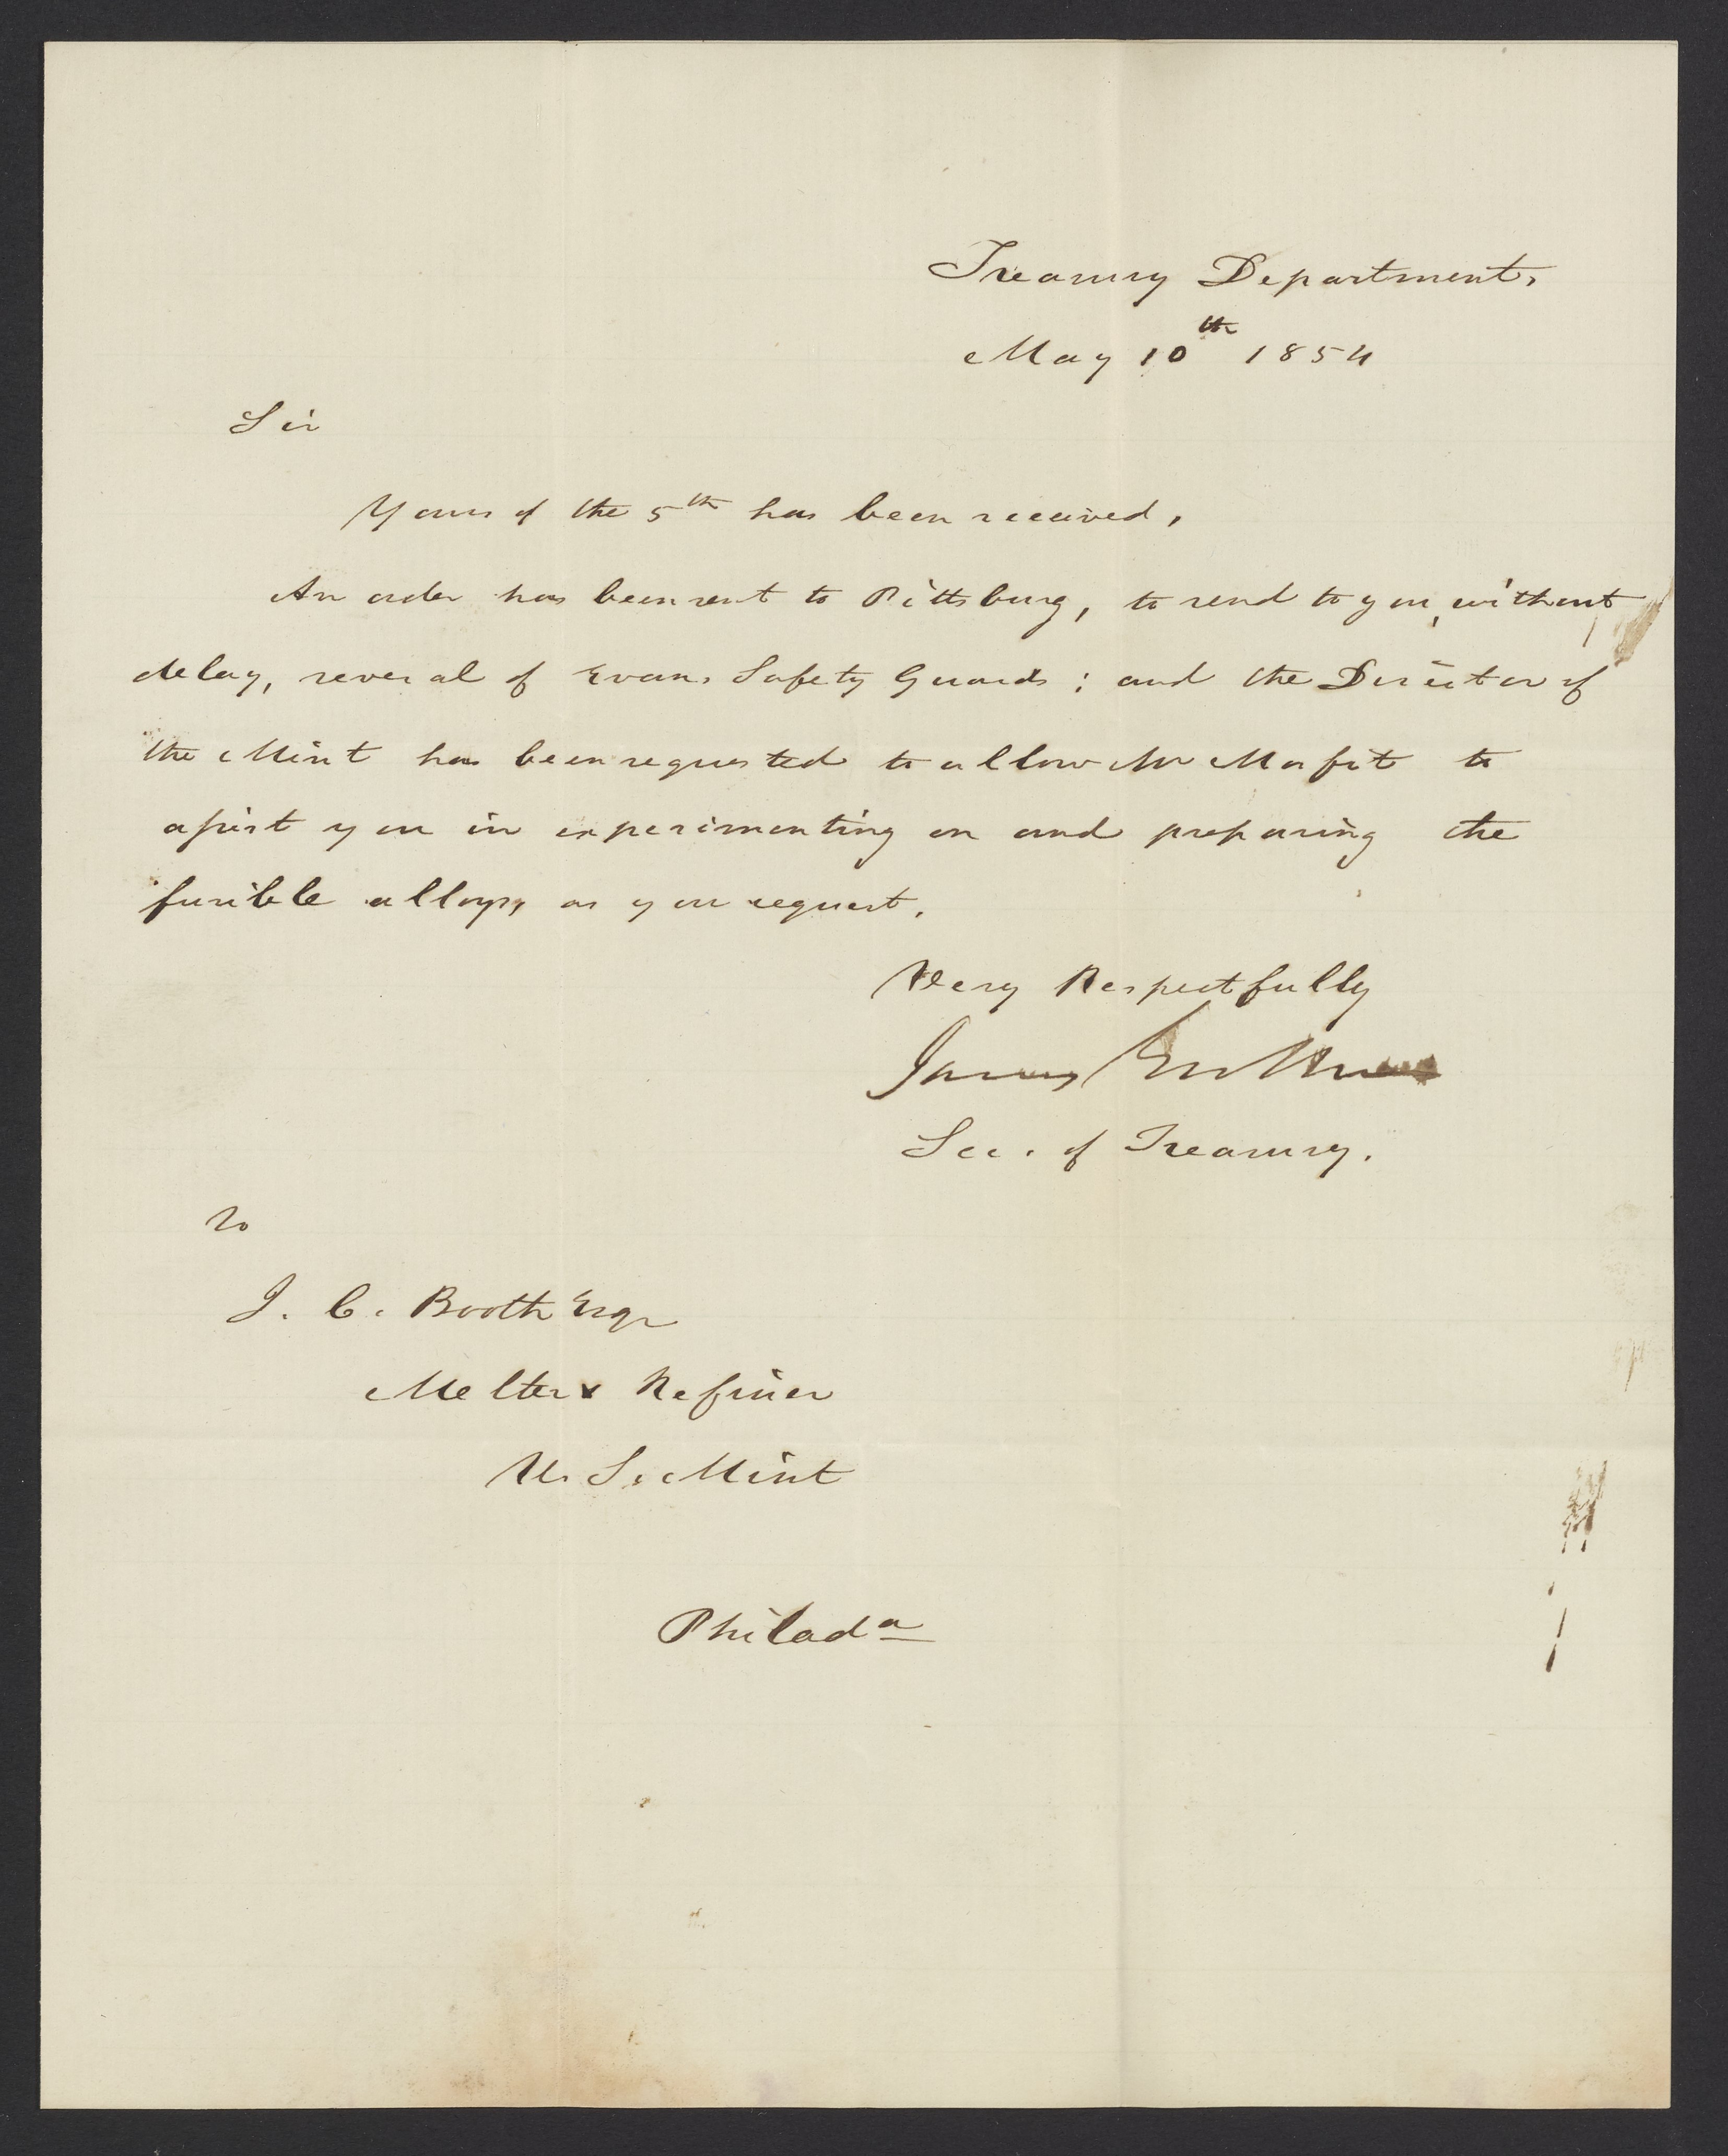 Treasury Department,
May 10th 1854
Sir
Yours of the 5th has been received,
An order has been sent to Pittsburg, to send to you, without
delay, several of Evans Safety Guards; and the Director of
the Mint has been requested to allow Mr Morfit to
assist you in experimenting on and preparing the
fusible alloys, as you request.
Very Respectfully
James Guthrie
Sec. of Treasury.
To
J. C. Booth Esqr
Melter & Refiner
U. S. Mint
Philada